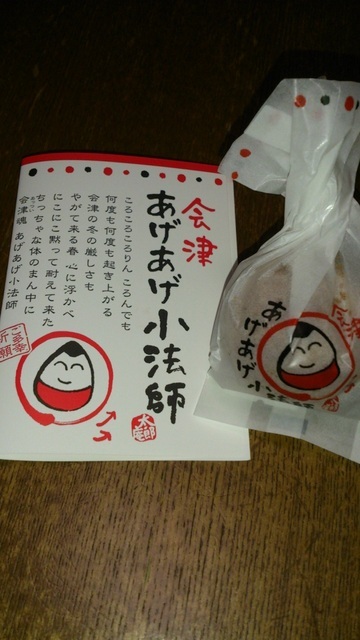 会津
あげあげ小法師
太郎庵
ころころころりん ころんでも
何度も何度も起き上がる
会津の冬の厳しさも
やがて来る春 心に浮かべ
にこにこ黙って耐えて来た
ちっちゃな体のまん中に
会津魂 あげあげ小法師
ご多幸
祈願
会津
あげあげ
小法師